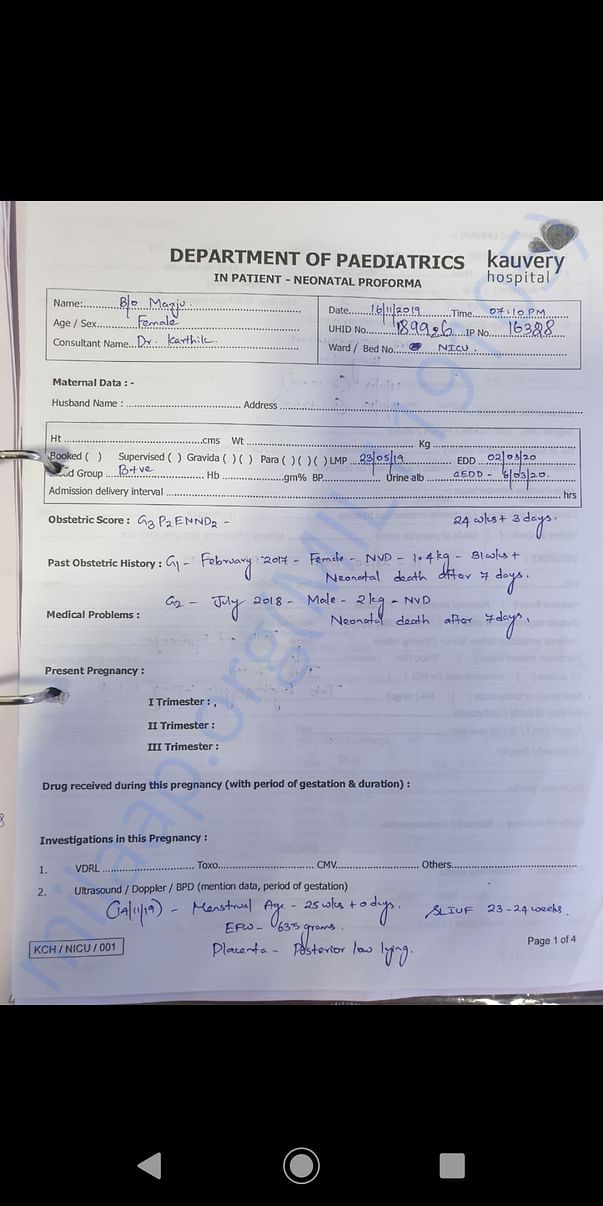 DEPARTMENT OF PAEDIATRICS
kauvery
hospital
IN PATIENT - NEONATAL PROFORMA
Name: B/o Manju.
Date 16/11/2019 Time 07:10 PM
Age / Sex Female
UHID No. IP No. 16328
Consultant Name Dr. Karthik
Ward / Bed No. NICU
Maternal Data : -
Husband Name : Address
Ht cms Wt Kg
Booked ( ) Supervised ( ) Gravida ( ) ( ) Para ( ) ( ) ( ) LMP 23/05/19 EDD 02/03/20
Group B+ve Hb gm% BP Urine alb CEDD - 6/03/20.
Admission delivery interval hrs
Obstetric Score : G3 P2 ENND2 - 24 wks + 3 days.
Past Obstetric History : G1 - February 2017 - Female - NVD - 1.4 kg - 31 wks +
Neonatal death after 7 days.
G2 - July 2018 - Male - 2 kg - NVD
Medical Problems : Neonatal death after 7 days.
Present Pregnancy :
I Trimester :
II Trimester :
III Trimester :
Drug received during this pregnancy (with period of gestation & duration) :
Investigations in this Pregnancy :
1. VDRL Toxo CMV Others
2. Ultrasound / Doppler / BPD (mention data, period of gestation)
(14/11/19) - Menstrual Age - 25 wks + 0 days. SLIUF 23-24 weeks.
EFW - 635 grams.
Placenta - Posterior low lying.
KCH / NICU / 001
Page 1 of 4